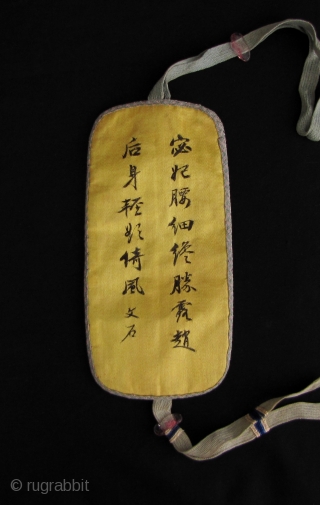 宓妃腰細纔勝露趙
后身輕欲倚風 文石
© rugrabbit